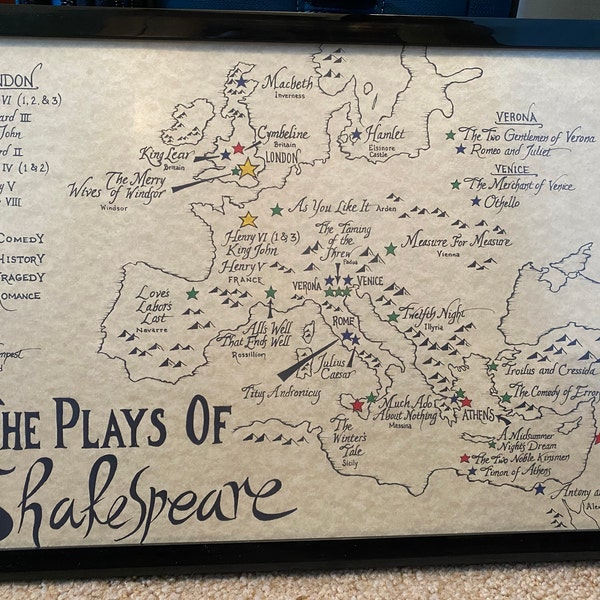 NDON
VI (1, 2, & 3)
ard III
John
ard II
IV (1 & 2)
y V
VIII
COMEDY
HISTORY
TRAGEDY
ROMANCE
mpest
Macbeth
Inverness
Cymbeline
Britain
King Lear
Britain
LONDON
The Merry
Wives of Windsor
Windsor
Hamlet
Elsinore
Castle
VERONA
The Two Gentlemen of Verona
Romeo and Juliet
VENICE
The Merchant of Venice
Othello
As You Like It
Arden
Henry VI (1 & 3)
King John
Henry V
FRANCE
The Taming
of the
Shrew
Padua
Measure For Measure
Vienna
VERONA
VENICE
Love's
Labor's
Lost
Navarre
All's Well
That Ends Well
Rossillion
Twelfth Night
Illyria
ROME
Julius
Caesar
Titus Andronicus
Troilus and Cressida
The Comedy of Error
Much Ado
About Nothing
Messina
ATHENS
The
Winter's
Tale
Sicily
A Midsummer
Night's Dream
The Two Noble Kinsmen
Timon of Athens
Antony a
Ale
THE PLAYS OF
Shakespeare